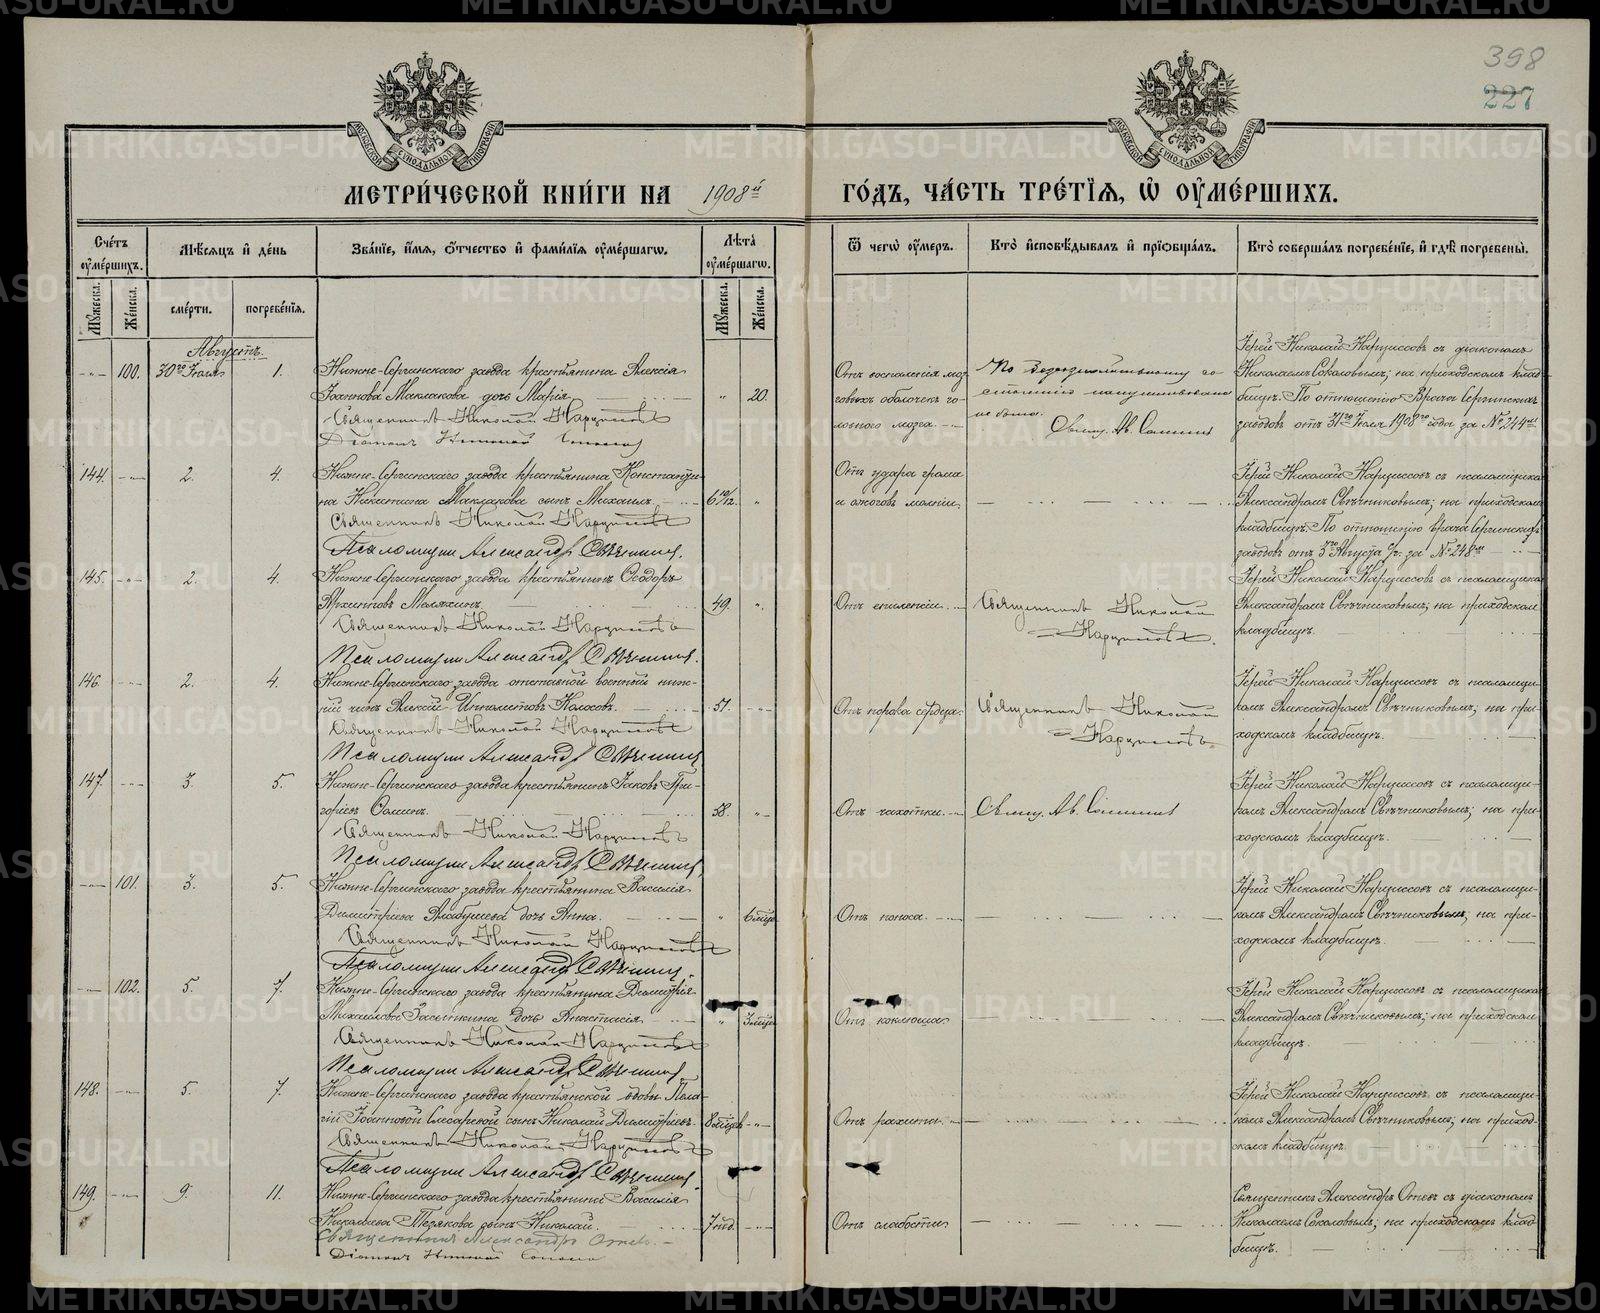 398
227
МЕТРИ́ЧЕСКОЙ КНИ́ГИ НА 1908й
ГО́ДЪ, ЧА́СТЬ ТРЕ́ТІѦ, Ѡ ОУМЕ́РШИХЪ.
Сче́тъ оумершихъ.
Мѣсяцъ и де́нь
Зва́ніе, и́мѧ, ѻтчество и фами́лія оуме́ршагѡ.
Лѣта̀ оуме́ршагѡ.
Ѿ чегѡ̀ оу́меръ.
Кто̀ исповѣ́дывалъ и прїѡбща́лъ.
Кто̀ соверша́лъ погребе́ніе, и гдѣ̀ погребены̀.
Му́жеска.
Же́нска.
сме́рти.
погребе́нїѧ.
Му́жеска.
Же́нска.
Августъ.
100. 30го Іюля 1. Нижне-Сергинскаго завода крестьянина Алексія
Іоаннова Маклакова дочь Марія 20.
Священникъ Николай Нарциссовъ
Діаконъ Николай
Отъ воспаленія моз-
говыхъ оболочекъ го-
ловного мозга.
Іерей Николай Нарциссовъ съ діакономъ
Николаемъ Соколовымъ; на приходскомъ клад-
бищѣ. По отношенію Врача Сергинскихъ
заводовъ отъ 31го Іюля 1908го года за № 244мъ
144. 2. 4. Нижне-Сергинскаго завода крестьянина Константи-
на Никитина Маклакова сынъ Михаилъ 6 10/12.
Священникъ Николай Нарциссовъ
Псаломщикъ Александръ Свѣчниковъ.
Отъ удара грома
и ожоговъ молніи
Іерей Николай Нарциссовъ съ псаломщикомъ
Александромъ Свѣчниковымъ; на приходскомъ
кладбищѣ. По отношенію врача Сергинскихъ
заводовъ отъ 3го Августа с/г. за № 248мъ
145. 2. 4. Нижне-Сергинскаго завода крестьянинъ Ѳеодоръ
Архиповъ Маляхинъ 49.
Священникъ Николай Нарциссовъ
Псаломщикъ Александръ Свѣчниковъ.
Отъ епилепсіи.
Священникъ Николай
Нарциссовъ.
Іерей Николай Нарциссовъ съ псаломщикомъ
Александромъ Свѣчниковымъ; на приходскомъ
кладбищѣ.
146. 2. 4. Нижне-Сергинскаго завода отставной военный ниж-
ній чинъ Алексій Ипполитовъ Колосовъ. 51.
Священникъ Николай Нарциссовъ
Псаломщикъ Александръ Свѣчниковъ
Отъ порока сердца.
Священникъ Николай
Нарциссовъ
Іерей Николай Нарциссовъ съ псаломщи-
комъ Александромъ Свѣчниковымъ; на при-
ходскомъ кладбищѣ.
147. 3. 5. Нижне-Сергинскаго завода крестьянинъ Іаковъ Гри-
горіевъ 58.
Священникъ Николай Нарциссовъ
Псаломщикъ Александръ Свѣчниковъ.
Отъ чахотки.
Іерей Николай Нарциссовъ съ псаломщи-
комъ Александромъ Свѣчниковымъ; на при-
ходскомъ кладбищѣ.
101. 3. 5. Нижне-Сергинскаго завода крестьянина Василія
Димитріева Алабушева дочь Анна. 6 мѣс.
Священникъ Николай Нарциссовъ
Псаломщикъ Александръ Свѣчниковъ.
Отъ поноса.
Іерей Николай Нарциссовъ съ псаломщи-
комъ Александромъ Свѣчниковымъ; на при-
ходскомъ кладбищѣ.
102. 5. 7. Нижне-Сергинскаго завода крестьянина Димитрія
Михайлова Засыпкина дочь Анастасія 3 мѣс.
Священникъ Николай Нарциссовъ
Псаломщикъ Александръ Свѣчниковъ.
Отъ коклюша.
Іерей Николай Нарциссовъ съ псаломщикомъ
Александромъ Свѣчниковымъ; на приходскомъ
кладбищѣ.
148. 5. 7. Нижне-Сергинскаго завода крестьянской вдовы Пела-
гіи Іоанновой Слесаревой сынъ Николай Димитріевъ. 8 мѣс.
Священникъ Николай Нарциссовъ
Псаломщикъ Александръ Свѣчниковъ
Отъ рахита.
Іерей Николай Нарциссовъ съ псаломщи-
комъ Александромъ Свѣчниковымъ; на приход-
скомъ кладбищѣ.
149. 9. 11. Нижне-Сергинскаго завода крестьянина Василія
Николаева Терякова сынъ Николай. 7 нед.
Священникъ Александръ Отевъ.
Діаконъ Николай
Отъ слабости.
Священникъ Александръ Отевъ съ діакономъ
Николаемъ Соколовымъ; на приходскомъ клад-
бищѣ.
METRIKI.GASO-URAL.RU